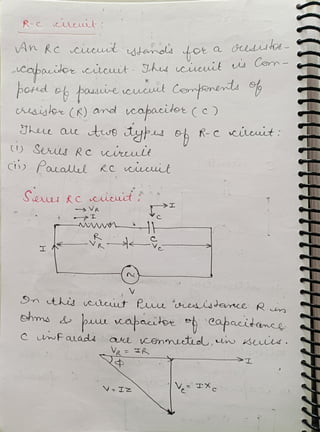 R-C circuit:
An RC circuit stands for a resistor-
capacitor circuit. This circuit is Com-
posed of passive circuit Components of
resistor (R) and capacitor (C)
There are two types of R-C circuit:
(i) Series RC circuit
(ii) Parallel RC circuit
Series RC circuit:
→ VR
→ I
→ I
C
R
C
VR
VC
I
V
In this circuit Pure resistance R in
ohms & pure capacitor of capacitance
C in Farads are connected in series.
VR = IR
I
ϕ
V = IZ
VC = IXC